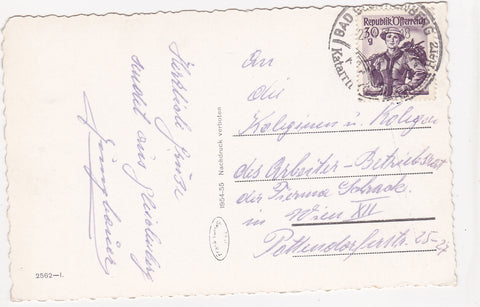 Herzliche Grüße
sendet aus Gleichenberg
Jungbauer
2562-I.
1954-55 Nachdruck verboten
BAD GLEICHENBERG
Katarrh
Republik Österreich
30
g
An
die
Kolleginnen u. Kollegen
des Arbeiter-Betriebsrat
der Firma Schrack
in Wien XII
Pottendorferstr. 25-27